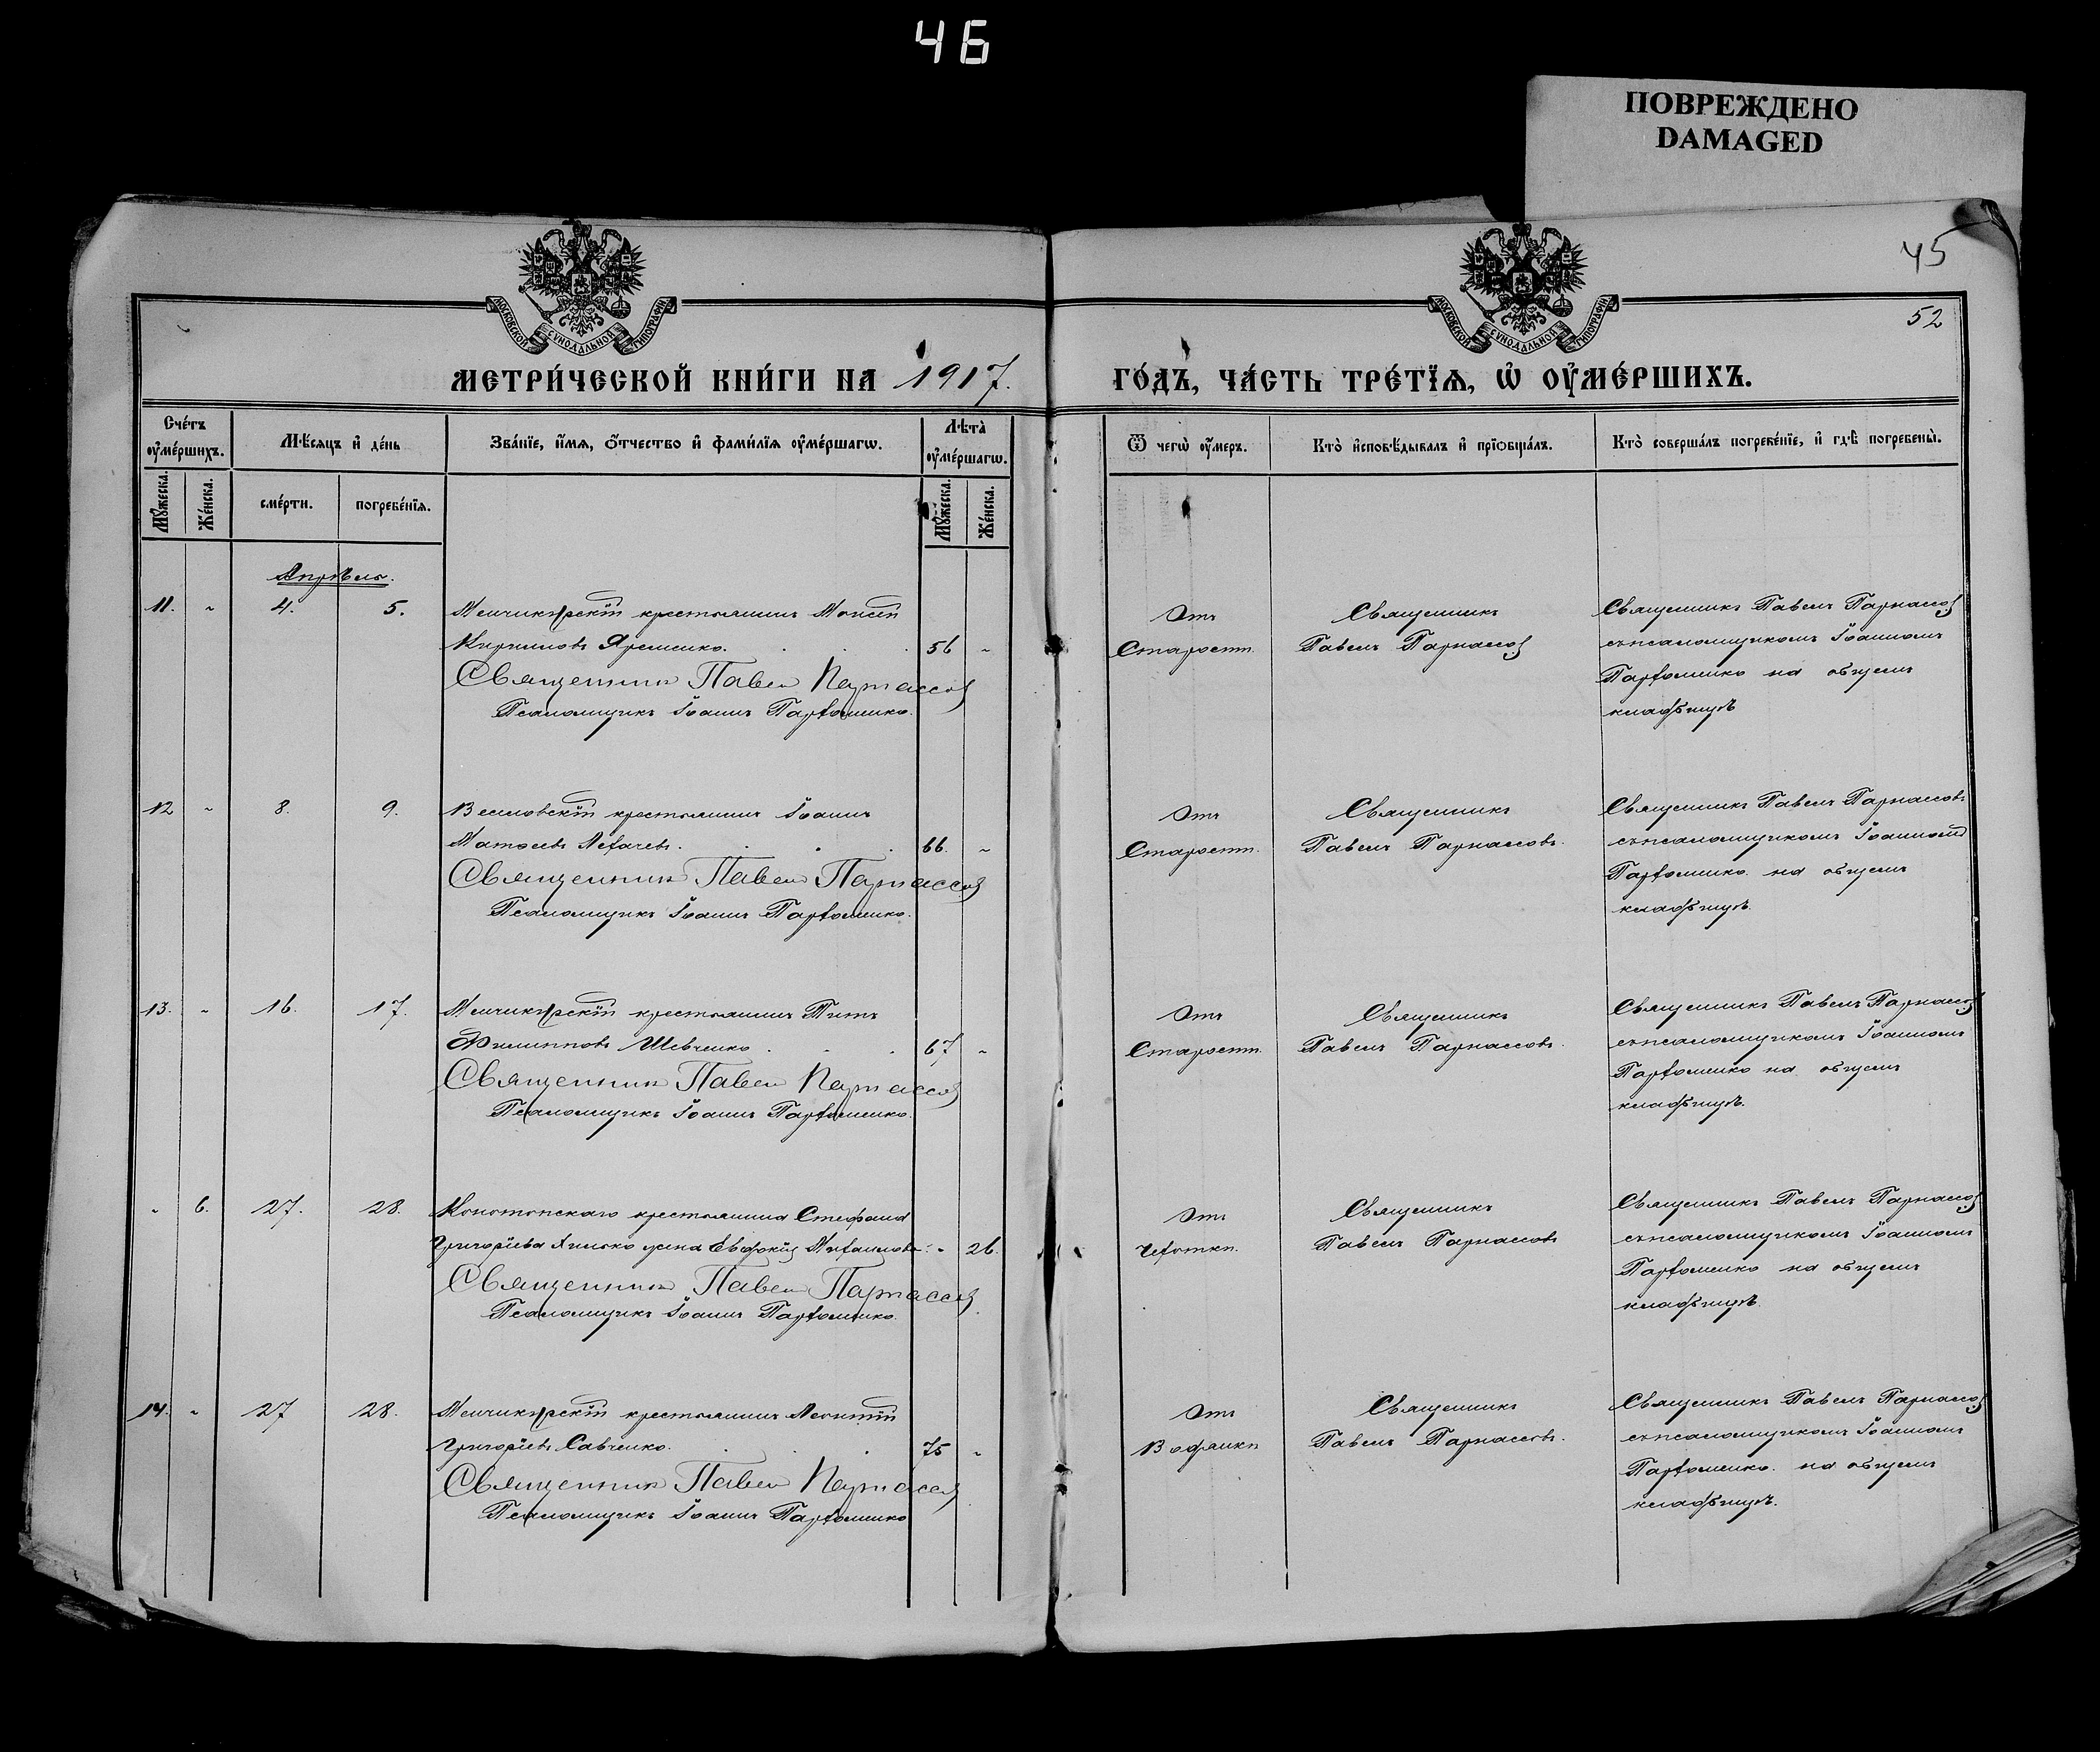 46
ПОВРЕЖДЕНО
DAMAGED
45
52
МОСКОВСКОЙ СУНОДАЛЬНОЙ ТИПОГРАФІИ
МОСКОВСКОЙ СУНОДАЛЬНОЙ ТИПОГРАФІИ
МЕТРИ́ЧЕСКОЙ КНИ́ГИ НА 1917.
ГО́ДЪ, ЧА́СТЬ ТРЕ́ТЇѦ, Ѡ҆ ОУ҆МЕ́РШИХЪ.
Сче́тъ оу҆ме́ршихъ.
Мꙋ́жеска.
Же́нска.
Мѣ́сѧцъ и҆ де́нь
сме́рти.
погребе́нїѧ.
Зва́нїе, и҆́мѧ, ѻ҆́тчество и҆ фами́лїѧ оу҆ме́ршагѡ.
Лѣта̀ оу҆ме́ршагѡ.
Мꙋ́жеска.
Же́нска.
Ѿ чегѡ̀ оу҆́меръ.
Кто̀ и҆сповѣ́дывалъ и҆ прїѡбща́лъ.
Кто̀ соверша́лъ погребе́нїе, и҆ гдѣ̀ погребены̀.
Апрѣль.
11. " 4. 5. Менчикурскій крестьянинъ Моисей
Кирилловъ Яременко. 56 "
Священник Павел Парнассов
Псаломщикъ Іоаннъ Пархоменко.
Отъ
Старости.
Священникъ
Павелъ Парнассов
Священникъ Павелъ Парнассов
съ псаломщикомъ Іоанномъ
Пархоменко на общемъ
кладбищѣ
12 " 8. 9. Веселовскій крестьянинъ Іоаннъ
Матѳеевъ Лехачевъ. 66. "
Священник Павел Парнассов
Псаломщикъ Іоаннъ Пархоменко.
Отъ
Старости.
Священникъ
Павелъ Парнассовъ.
Священникъ Павелъ Парнассовъ
съ псаломщикомъ Іоанномъ
Пархоменко. на общемъ
кладбищѣ.
13. " 16. 17. Менчикурскій крестьянинъ Титъ
Филипповъ Шевченко. 67 "
Священник Павел Парнассов
Псаломщикъ Іоаннъ Пархоменко.
Отъ
Старости.
Священникъ
Павелъ Парнассовъ.
Священникъ Павелъ Парнассов
съ псаломщикомъ Іоанномъ
Пархоменко на общемъ
кладбищѣ.
" 6. 27. 28. Конотопскаго крестьянина Стефана
Григоріева жена Евфокія Михаилова " 26.
Священник Павел Парнассов
Псаломщикъ Іоаннъ Пархоменко.
Отъ
Чехотки.
Священникъ
Павелъ Парнассовъ
Священникъ Павелъ Парнассов
съ псаломщикомъ Іоанномъ
Пархоменко на общемъ
кладбищѣ.
14. " 27 28. Менчикурскій крестьянинъ Леонтій
Григоріевъ Савченко. 75 "
Священник Павел Парнассов
Псаломщикъ Іоаннъ Пархоменко
Отъ
Водянки
Священникъ
Павелъ Парнассовъ.
Священникъ Павелъ Парнассов
съ псаломщикомъ Іоанномъ
Пархоменко. на общемъ
кладбищѣ.